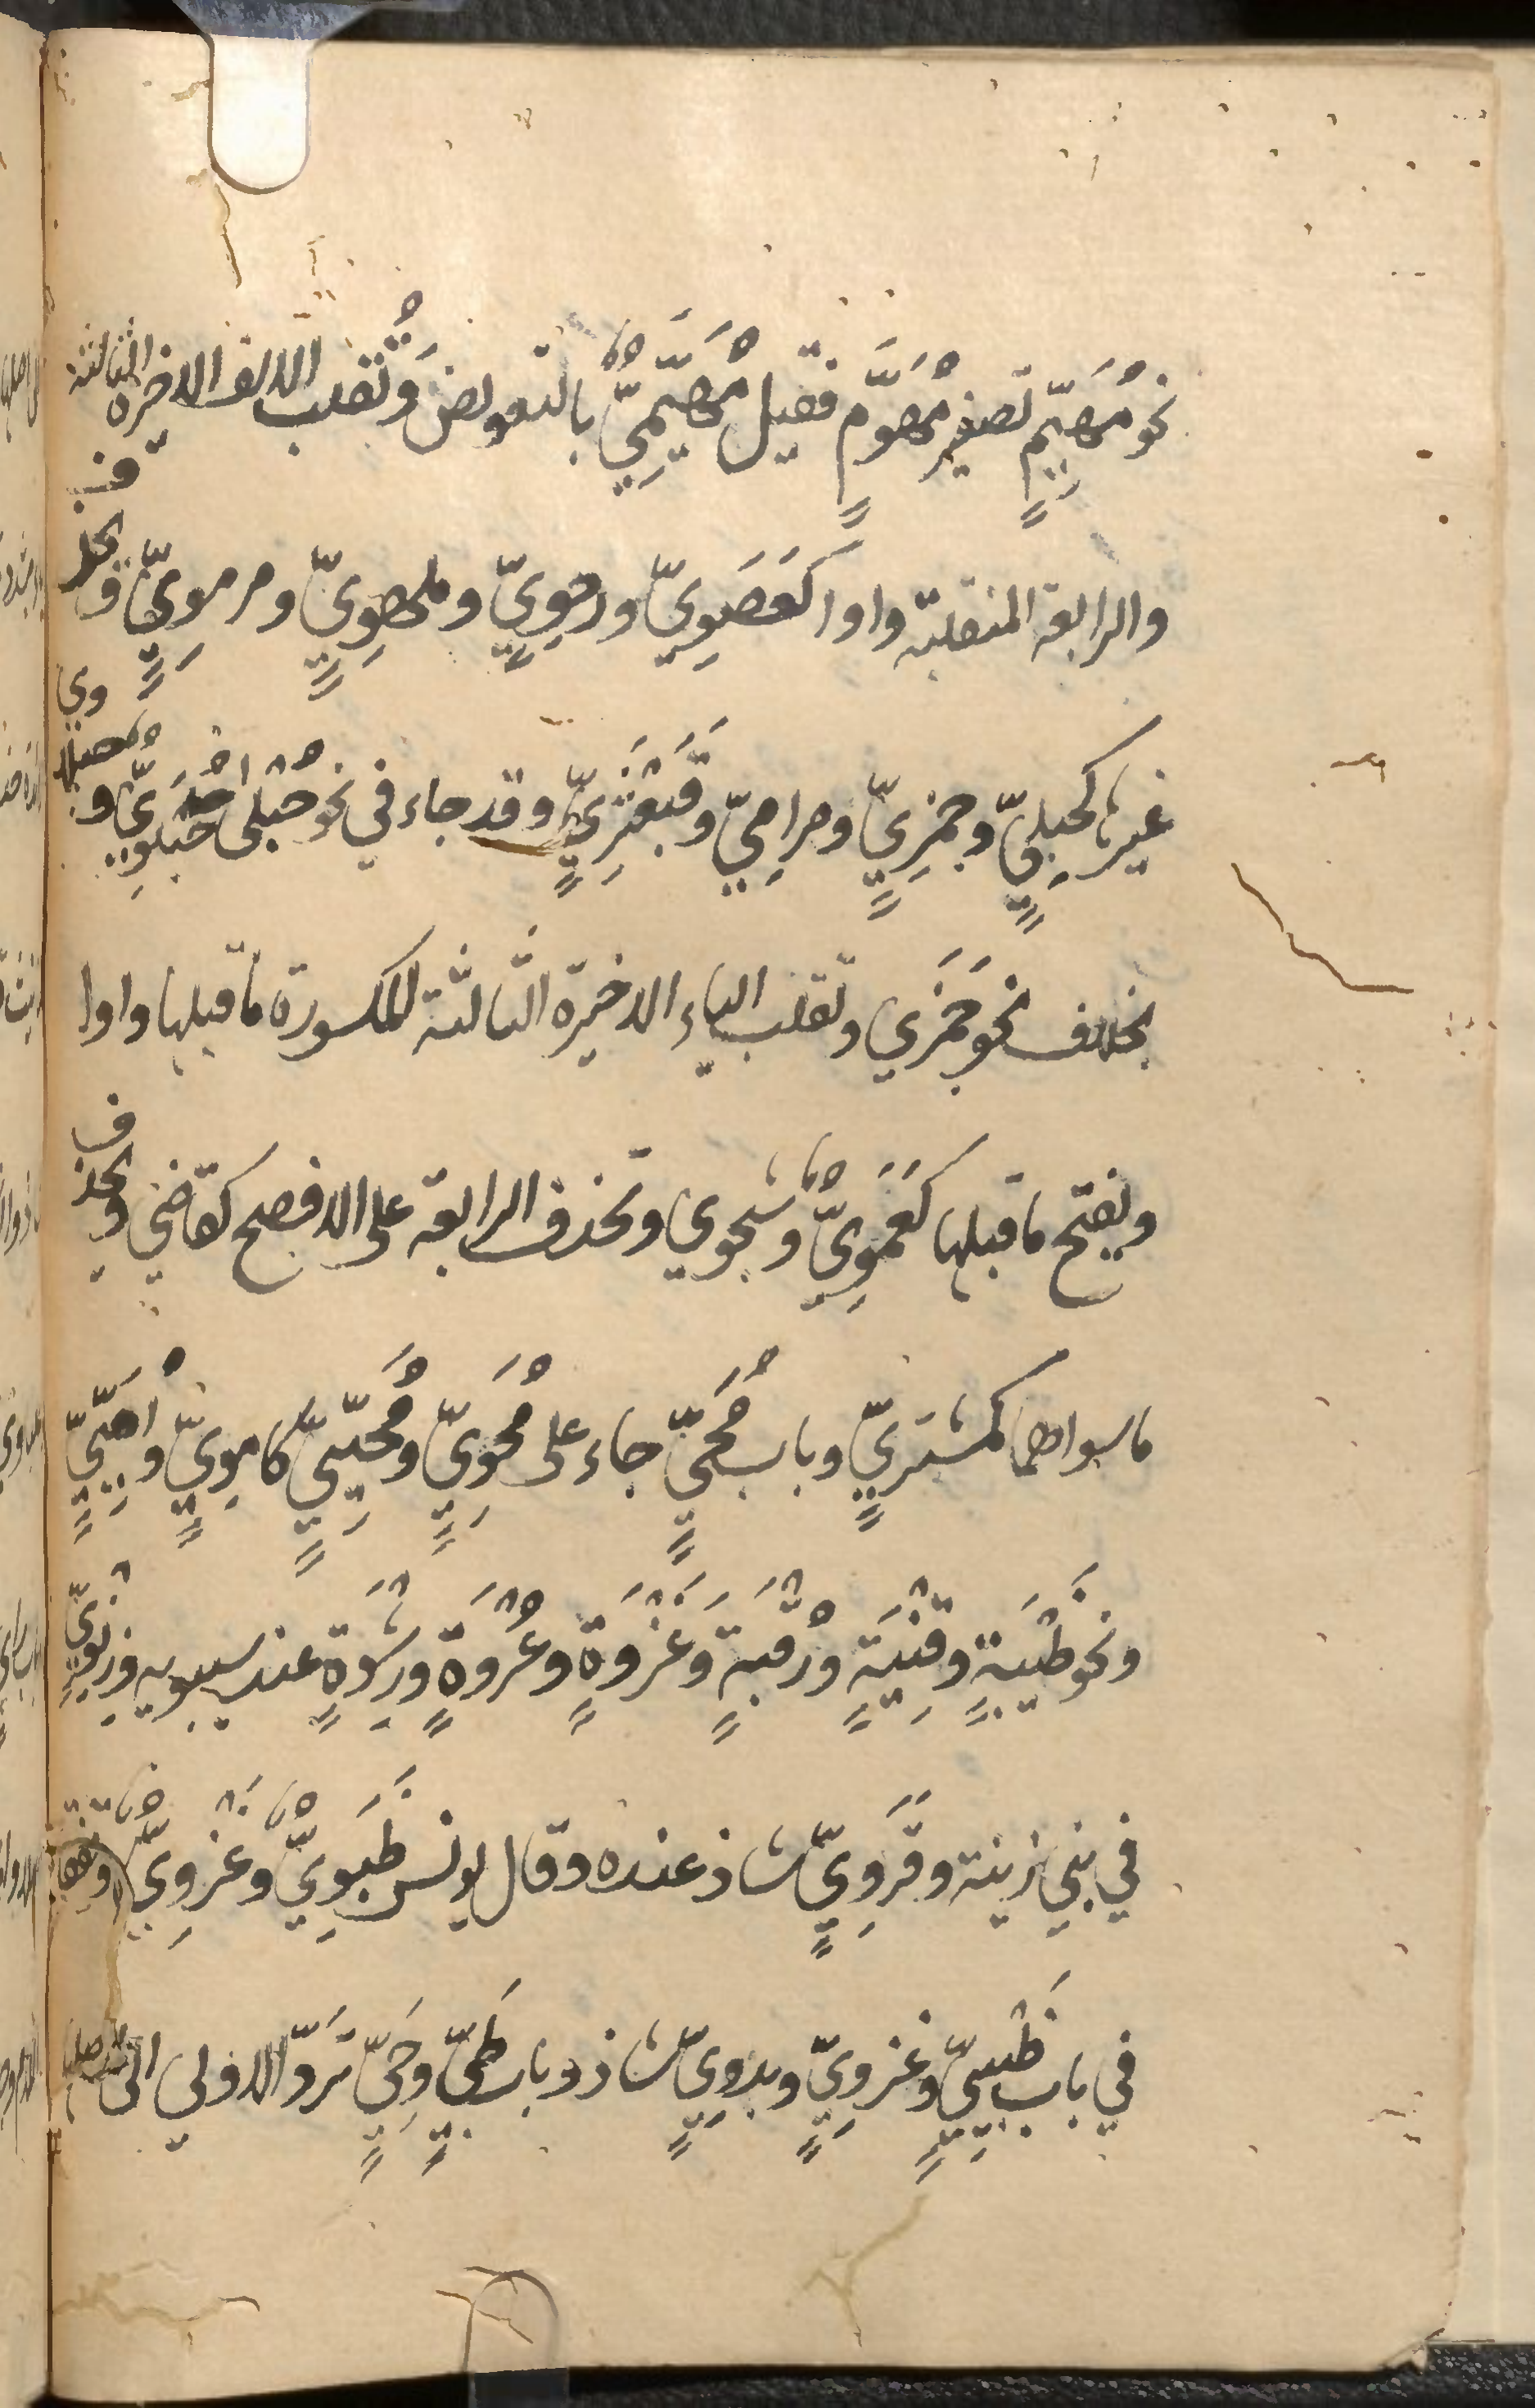 نحو مُهَيِّمٍ تصغير مُهَوِّمٍ فقيل مُهَيِّمِيٌّ بالتعويض وَتُقلب الالف الاخيرة الثالثة
والرابعة المنقلبة واوا كَعَصَوِيّ ورحَوِيٍّ وملهَوِيٍّ ومرمَوِيٍّ ويحذف
غيرها كحبلِيٍّ وجمَزِيٍّ ومرامِيّ وقَبَعْثَرِيٍّ وقد جاء في نحو حُبْلى حُبْلَوِيّ و
بخلاف نحو جَمَزي وتقلب الياء الاخيرة الثالثة المكسورة ما قبلها واوا
ويفتح ما قبلها كَعَمَوِيٌّ وشجوي وتحذف الرابعة على الافصح كقاضي ويحذف
ما سواهما كمشترِيٍّ وباب مُحَيٍّ جاء على مُحَوِيٍّ ومُحَيِّيٍّ كاموِيٍّ واُمَيِّيٍّ
ونحو ظَبْيَةٍ وقِنْيَةٍ ورُقْيَةٍ وَغَزْوَةٍ وعُرْوَةٍ ورِشْوَةٍ عند سيبويه وزِنَوِيٌّ
في بني زينة وقَرَوِيٍّ شاذ عنده وقال يونس ظَبَوِيٌّ وغَزَوِيٌّ
في باب ظَبْيِيٍّ وغزوِيٍّ وبدوِيٍّ شاذ وباب طَيٍّ وحَيٍّ تردّ الاولي الى اصلها